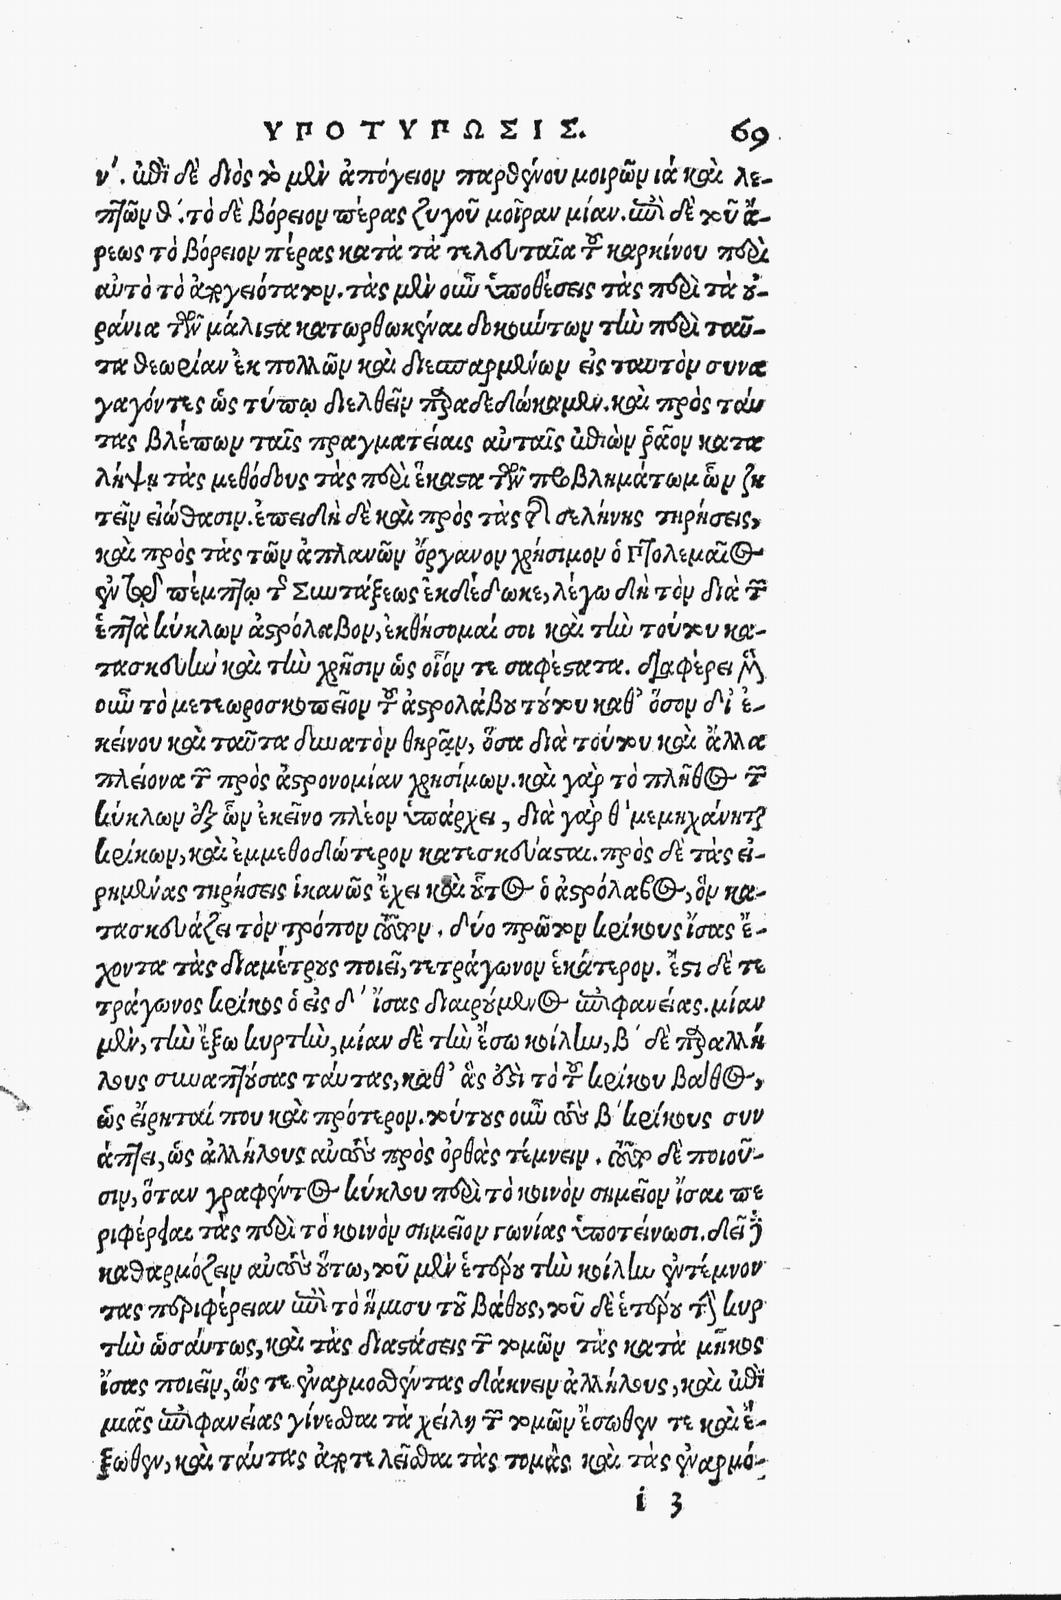 ΥΠΟΤΥΠΩΣΙΣ. 69
ν΄. ἐπὶ δὲ διὸς τὸ μὲν ἀπόγειον παρθένου μοιρῶν ιά καὶ λε-
πτῶν θ΄. τὸ δὲ βόρειον πέρας ζυγοῦ μοῖραν μίαν. ἐπὶ δὲ τοῦ ἄ-
ρεως τὸ βόρειον πέρας κατὰ τὰ τελευταῖα τοῦ καρκίνου περὶ
αὐτὸ τὸ ἀπογειότατον. τὰς μὲν οὖν ὑποθέσεις τὰς περὶ τὰ οὐ-
ράνια τῶν μάλιστα κατωρθωκέναι δοκούντων τὴν περὶ ταῦ-
τα θεωρίαν ἐκ πολλῶν καὶ διεσπαρμένων εἰς ταυτὸν συνα
γαγόντες ὡς τύπῳ διελθεῖν παραδεδώκαμεν. καὶ πρὸς ταύ
τας βλέπων ταῖς πραγματείαις αὐταῖς ἐπιὼν ῥᾷον κατα
λήψῃ τὰς μεθόδους τὰς περὶ ἕκαστα τῶν προβλημάτων ὧν ζη
τεῖν εἰώθασιν. ἐπειδὴ δὲ καὶ πρὸς τὰς τῆς σελήνης τηρήσεις,
καὶ πρὸς τὰς τῶν ἀπλανῶν ὄργανον χρήσιμον ὁ Πτολεμαῖος
ἐν τῷ πέμπτῳ τῆς Συντάξεως ἐκδέδωκε, λέγω δὴ τὸν διὰ τῶν
ἑπτὰ κύκλων ἀστρόλαβον, ἐκθήσομαί σοι καὶ τὴν τούτου κα-
τασκευὴν καὶ τὴν χρῆσιν ὡς οἷόν τε σαφέστατα. διαφέρει μὲν
οὖν τὸ μετεωροσκοπεῖον τοῦ ἀστρολάβου τούτου καθ’ ὅσον δι’ ἐ-
κείνου καὶ ταῦτα δυνατὸν θηρᾷν, ὅσα διὰ τούτου καὶ ἄλλα
πλείονα τῶν πρὸς ἀστρονομίαν χρησίμων. καὶ γὰρ τὸ πλῆθος τῶν
κύκλων ἐξ ὧν ἐκεῖνο πλέον ὑπάρχει, διὰ γὰρ θ΄ μεμηχάνηται
κρίκων, καὶ ἐμμεθοδώτερον κατεσκεύασται. πρὸς δὲ τὰς εἰ-
ρημένας τηρήσεις ἱκανῶς ἔχει καὶ οὗτος ὁ ἀστρόλαβος, ὃν κα-
τασκευάζει τὸν τρόπον τοῦτον. δύο πρῶτον κρίκους ἴσας ἔ-
χοντα τὰς διαμέτρους ποιεῖ, τετράγωνον ἑκάτερον. ἔστι δὲ τε
τράγωνος κρίκος ὁ εἰς δ΄ ἴσας διαιρούμενος ἐπιφανείας. μίαν
μὲν, τὴν ἔξω κυρτὴν, μίαν δὲ τὴν ἔσω κοίλην, β΄ δὲ παραλλή
λους συναπτούσας ταύτας, καθ’ ἃς ἐστὶ τὸ τοῦ κρίκου βάθος,
ὡς εἴρηταί που καὶ πρότερον. τούτους οὖν τοὺς β΄ κρίκους συν
άπτει, ὡς ἀλλήλους αὐτοὺς πρὸς ὀρθὰς τέμνειν. τοῦτο δὲ ποιοῦ-
σιν, ὅταν γραφέντος κύκλου περὶ τὸ κοινὸν σημεῖον ἴσαι πε
ριφέρειαι τὰς περὶ τὸ κοινὸν σημεῖον γωνίας ὑποτείνωσι. δεῖ δὲ
καθαρμόζειν αὐτοὺς οὕτω, τοῦ μὲν ἑτέρου τὴν κοίλην ἐντέμνον
τας περιφέρειαν ἐπὶ τὸ ἥμισυ τοῦ βάθους, τοῦ δὲ ἑτέρου τὴν κυρ
τὴν ὡσαύτως, καὶ τὰς διαστάσεις τῶν τομῶν τὰς κατὰ μῆκος
ἴσας ποιεῖν, ὥς τε ἐναρμοσθέντας δάκνειν ἀλλήλους, καὶ ἐπὶ
μιᾶς ἐπιφανείας γίνεσθαι τὰ χείλη τῶν τομῶν ἔσωθεν τε καὶ ἔ-
ξωθεν, καὶ ταύτας ἀποτελεῖσθαι τὰς τομὰς καὶ τὰς ἐναρμό-
i 3